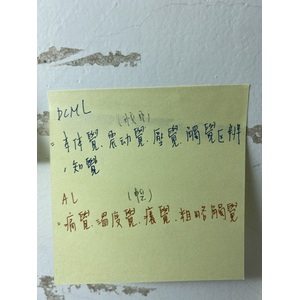 DCML
= 本体覺、震动覺、壓覺、觸覺区辨
、知覺
AL
= 痛覺、溫度覺、癢覺、粗略觸覺